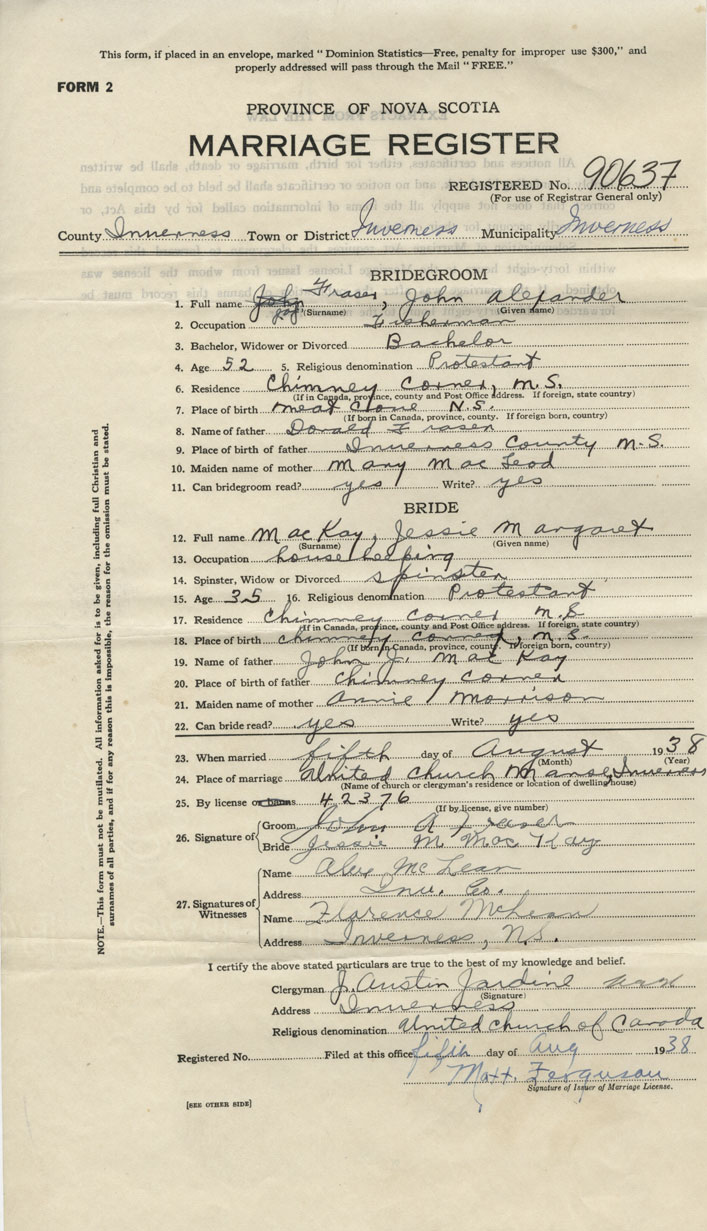 This form, if placed in an envelope, marked " Dominion Statistics—Free, penalty for improper use $300," and
properly addressed will pass through the Mail " FREE."
FORM 2
PROVINCE OF NOVA SCOTIA
MARRIAGE REGISTER
REGISTERED No. 90637
(For use of Registrar General only)
County Inverness Town or District Inverness Municipality Inverness
BRIDEGROOM
1. Full name Fraser, John Alexander
(Surname) (Given name)
2. Occupation Fisherman
3. Bachelor, Widower or Divorced Bachelor
4. Age 52 5. Religious denomination Protestant
6. Residence Chimney Corner, N.S.
(If in Canada, province, county and Post Office address. If foreign, state country)
7. Place of birth N.S.
(If born in Canada, province, county. If foreign born, country)
8. Name of father Donald Fraser
9. Place of birth of father Inverness County N.S.
10. Maiden name of mother Mary Mac Leod
11. Can bridegroom read? yes Write? yes
BRIDE
12. Full name MacKay, Jessie Margaret
(Surname) (Given name)
13. Occupation housekeeping
14. Spinster, Widow or Divorced spinster
15. Age 35 16. Religious denomination Protestant
17. Residence Chimney Corner N.S
(If in Canada, province, county and Post Office address. If foreign, state country)
18. Place of birth Chimney Corner, N.S.
(If born in Canada, province, county. If foreign born, country)
19. Name of father John J. MacKay
20. Place of birth of father Chimney Corner
21. Maiden name of mother Annie Morrison
22. Can bride read? yes Write? yes
23. When married fifth day of August 1938
(Month) (Year)
24. Place of marriage United Church Manse, Inverness
(Name of church or clergyman's residence or location of dwelling house)
25. By license or banns 42376
(If by license, give number)
26. Signature of Groom John A Fraser
Bride Jessie M MacKay
27. Signatures of Witnesses
Name Alex McLean
Address Inv. Co.
Name Florence McLean
Address Inverness, N.S.
I certify the above stated particulars are true to the best of my knowledge and belief.
Clergyman J. Austin Jardine
(Signature)
Address Inverness
Religious denomination United Church of Canada
Registered No. Filed at this office fifth day of Aug 1938
Matt. Ferguson
Signature of Issuer of Marriage License.
[SEE OTHER SIDE]
NOTE.—This form must not be mutilated. All information asked for is to be given, including full Christian and
surnames of all parties, and if for any reason this is impossible, the reason for the omission must be stated.